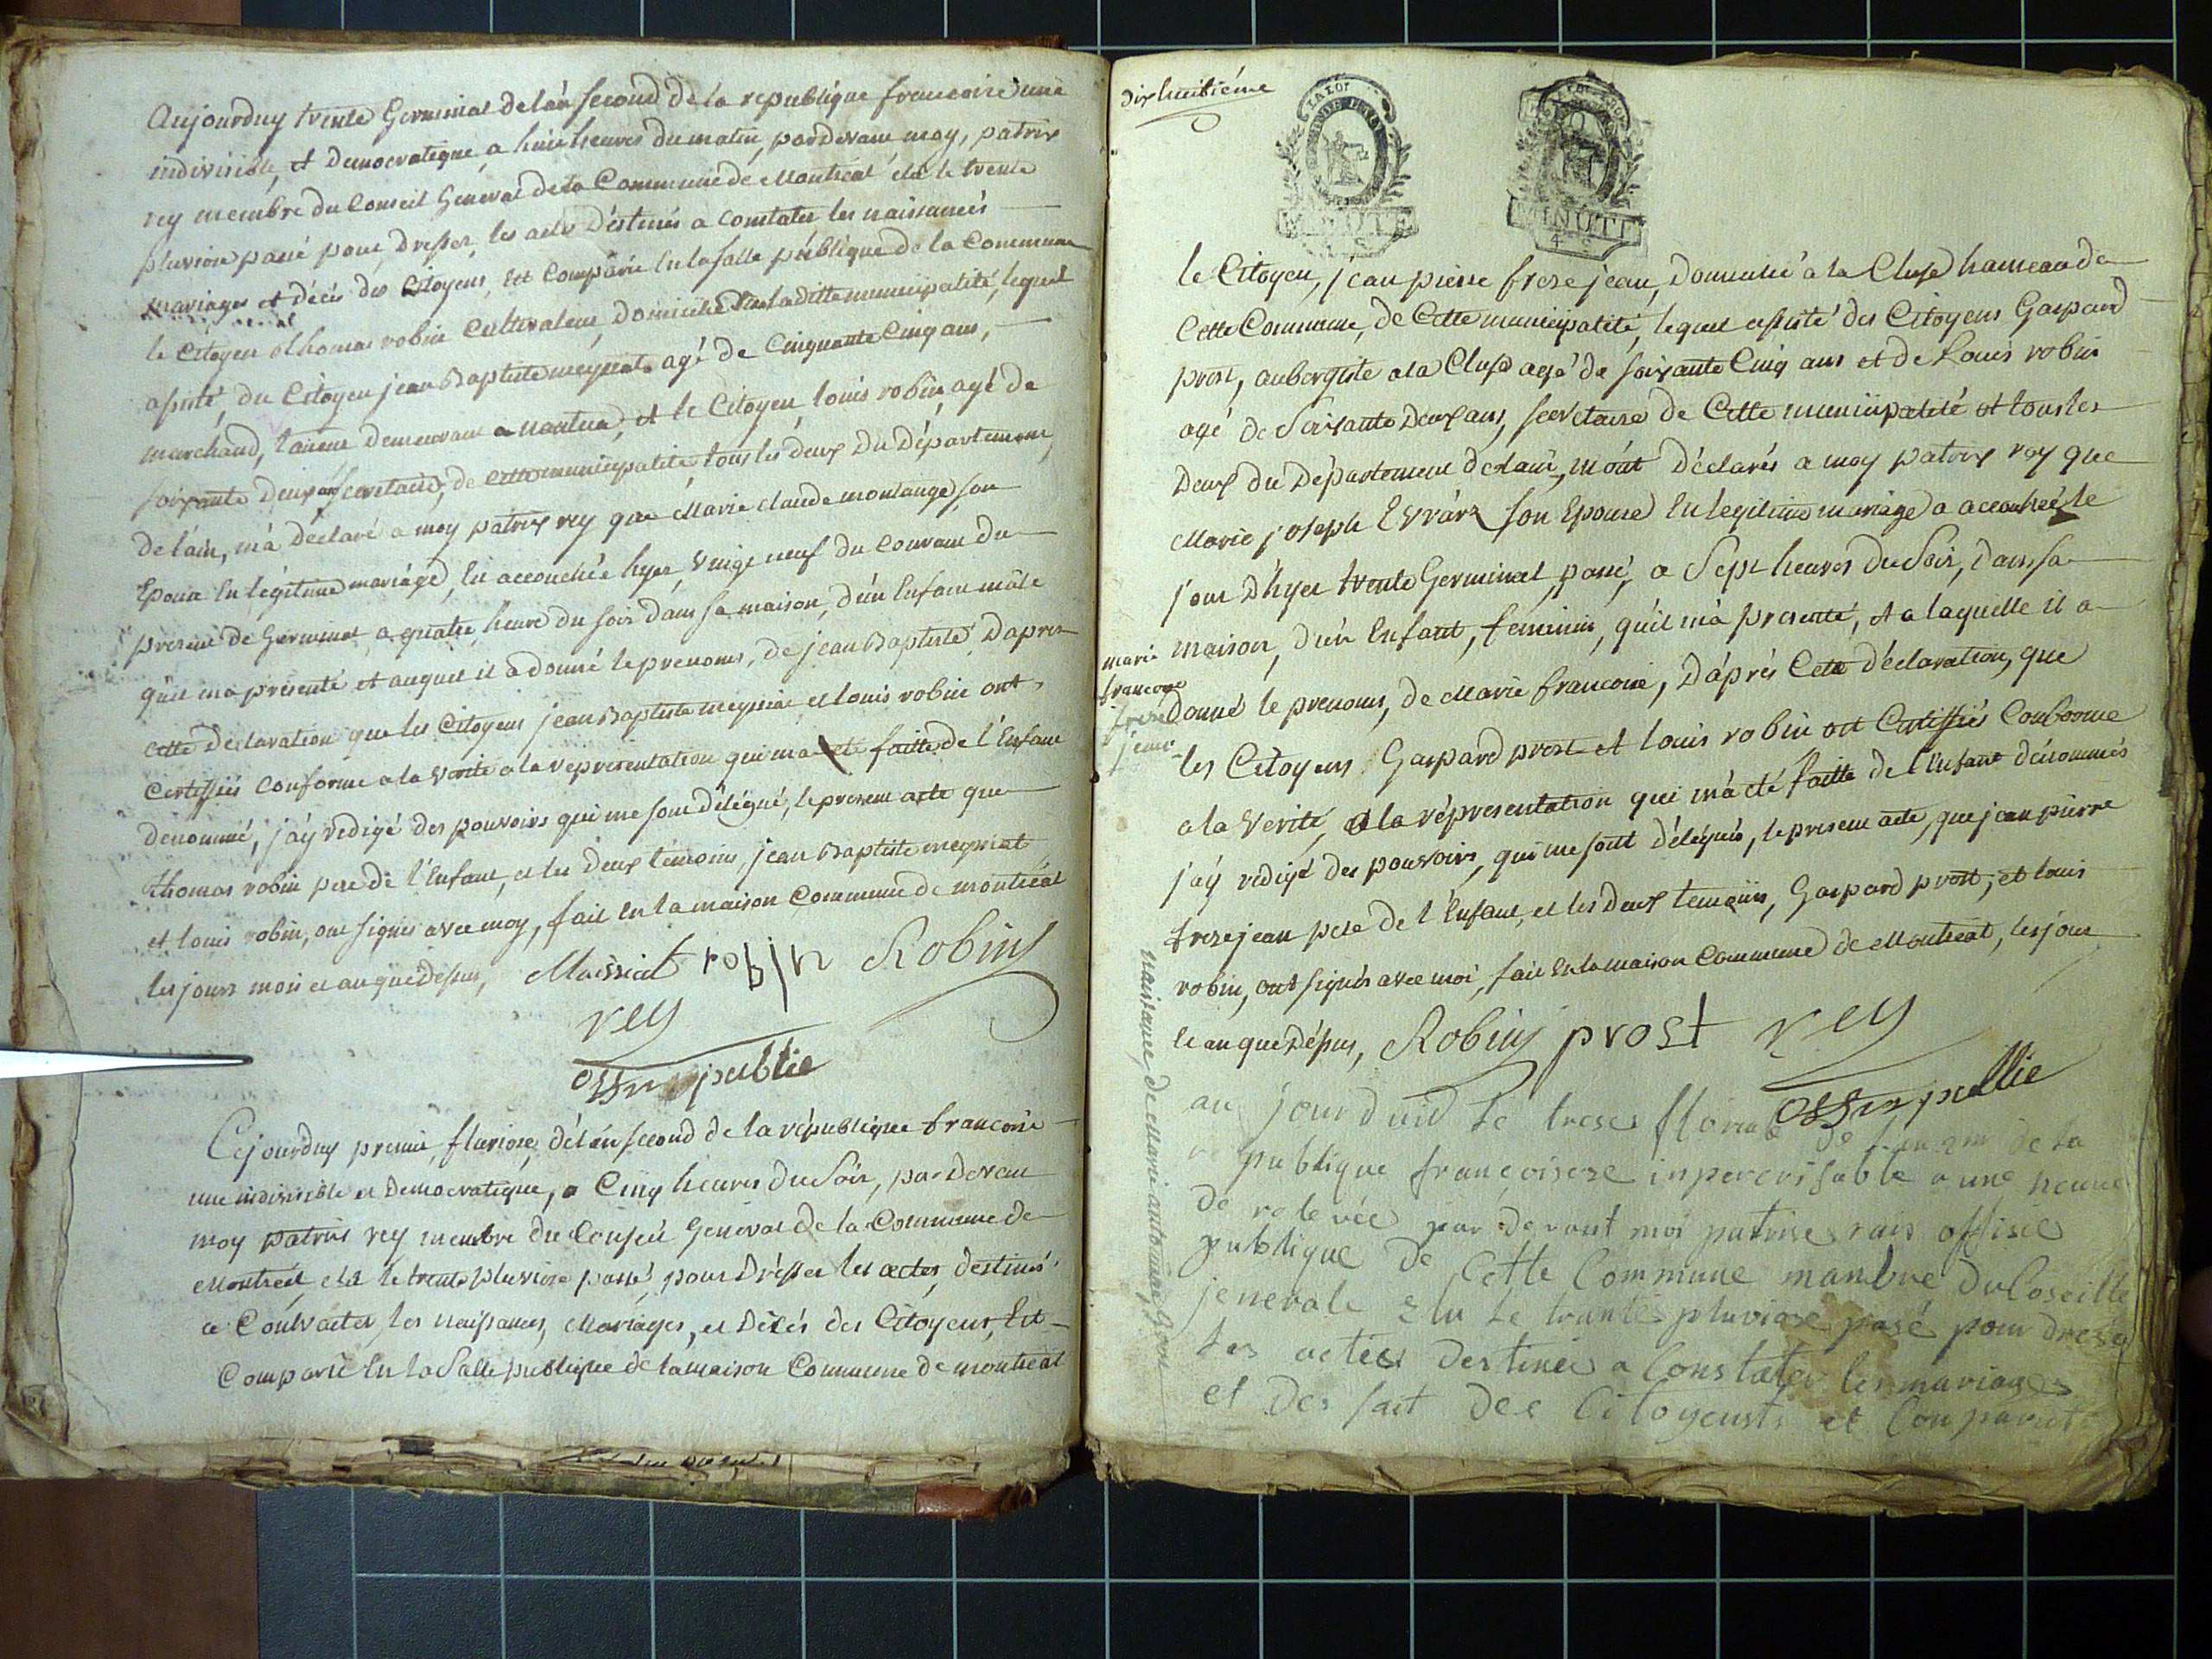 Aujourduy trente Germinal de l'an second de la republique francoise une
indivisible, et democratique, a huit heures du matin, pardevant moy, patrix
rey membre du Conseil General de la Commune de Montreal élu le trente
pluviose passé pour dresser, les actes déstinés a constater les naissances
mariages et décés des Citoyens, est comparu en la salle publique de la Commune
le Citoyen thomas robin Cultivateur, domicilié dans laditte municipalité, lequel
assisté, du Citoyen jean Baptiste meyniat agé de Cinquante Cinq ans,
marchand, taneur demeurant a nantua, et le Citoyen louis robin, agé de
soixante deux ans secretaire, de cette municipalité tous les deux du Département
de l'ain, m'a déclaré a moy patrix rey que Marie claude montange, son
Epouse en légitime mariage, en accouchée hyer, vingt neuf du courant du
present de Germinal, a quatre heure du soir dans sa maison, d'un Enfant mâle
qu'il m'a présenté et auquel il a donné le prenoms, de jean Baptiste, D'apres
cette declaration que les Citoyens jean Baptiste meyniat et louis robin ont
certiffiés conforme a la verité a la representation qui m'a été faitte de l'Enfant
denommé, j'aÿ redigé des pouvoirs qui me sont délégué, le present acte que
thomas robin pere de l'Enfant, et les deux témoins, jean Baptiste meyniat
et louis robin, ont signés avec moy, fait en la maison Commune de montréal
les jours mois et an que dessus, Maissiat robin Robin
rey
off publie
Cejourduy premier, floriose, de l'an second de la république francoise
une indivisible et democratique, a Cinq heures du Soir, par devant
moy patrix rey membre du Conseil General de la Commune de
Montréal, élu le trente pluviose passé, pour drésser les actes, destinés
a Constater, les naissances, Mariages, et Décés des Citoyens, Est
Comparu en la Salle publique de la maison Commune de montréal
dix huitiéme
LA LOI
MINUTE
MINUTE
4 S
le Citoyen, jean pierre frere jean, Domicilié a la Cluse hameau de
Cette Commune, de Cette municipalité, lequel assisté des Citoyens Gaspard
prost, aubergiste a la Cluse agé de soixante Cinq ans et de Louis robin
agé de Soixante Deux ans, secretaire de Cette municipalité et tous les
Deux du Département de l'ain, m'ont Déclarés a moy patrix rey que
Marie joseph Evrard son Epouse En legitime mariage a accouchée le
jour D'hyer trente Germinal, passé, a Sept heures du Soir, Dans sa
maison, d'un Enfant, feminin, qu'il m'a presenté, et a laquelle il a
donné le prenoms, de Marie francoise, D'aprés Cette déclaration, que
les Citoyens Gaspard prost et louis robin ont Certiffiés Conforme
a la Verité, a la réprésentation qui m'a été faitte de l'Enfant dénommés
j'aÿ redigé des pouvoirs, qui me sont délégués, le present acte, que jean pierre
frere jean pere de l'Enfant, et les Deux temoins, Gaspard prost, et louis
robin, ont signés avec moi, fait en la maison Commune de Montréal, les jour
et an que Déssus, Robin prost rey
off publie
marie
francoise
frere
jean
naissance de Marie antoinaz Goon
au jourduid le trese florial de l'an 2me de la
republique françoisese inperevisable a une heure
de relevée par devant moi patrise rais offisie
publique de Cette Commune manbre du Coseille
jenerale elu le trantes pluviose pasé pour dresé
les actes destinés a Constater les mariages
et des sait des Citoyensts et Conparut